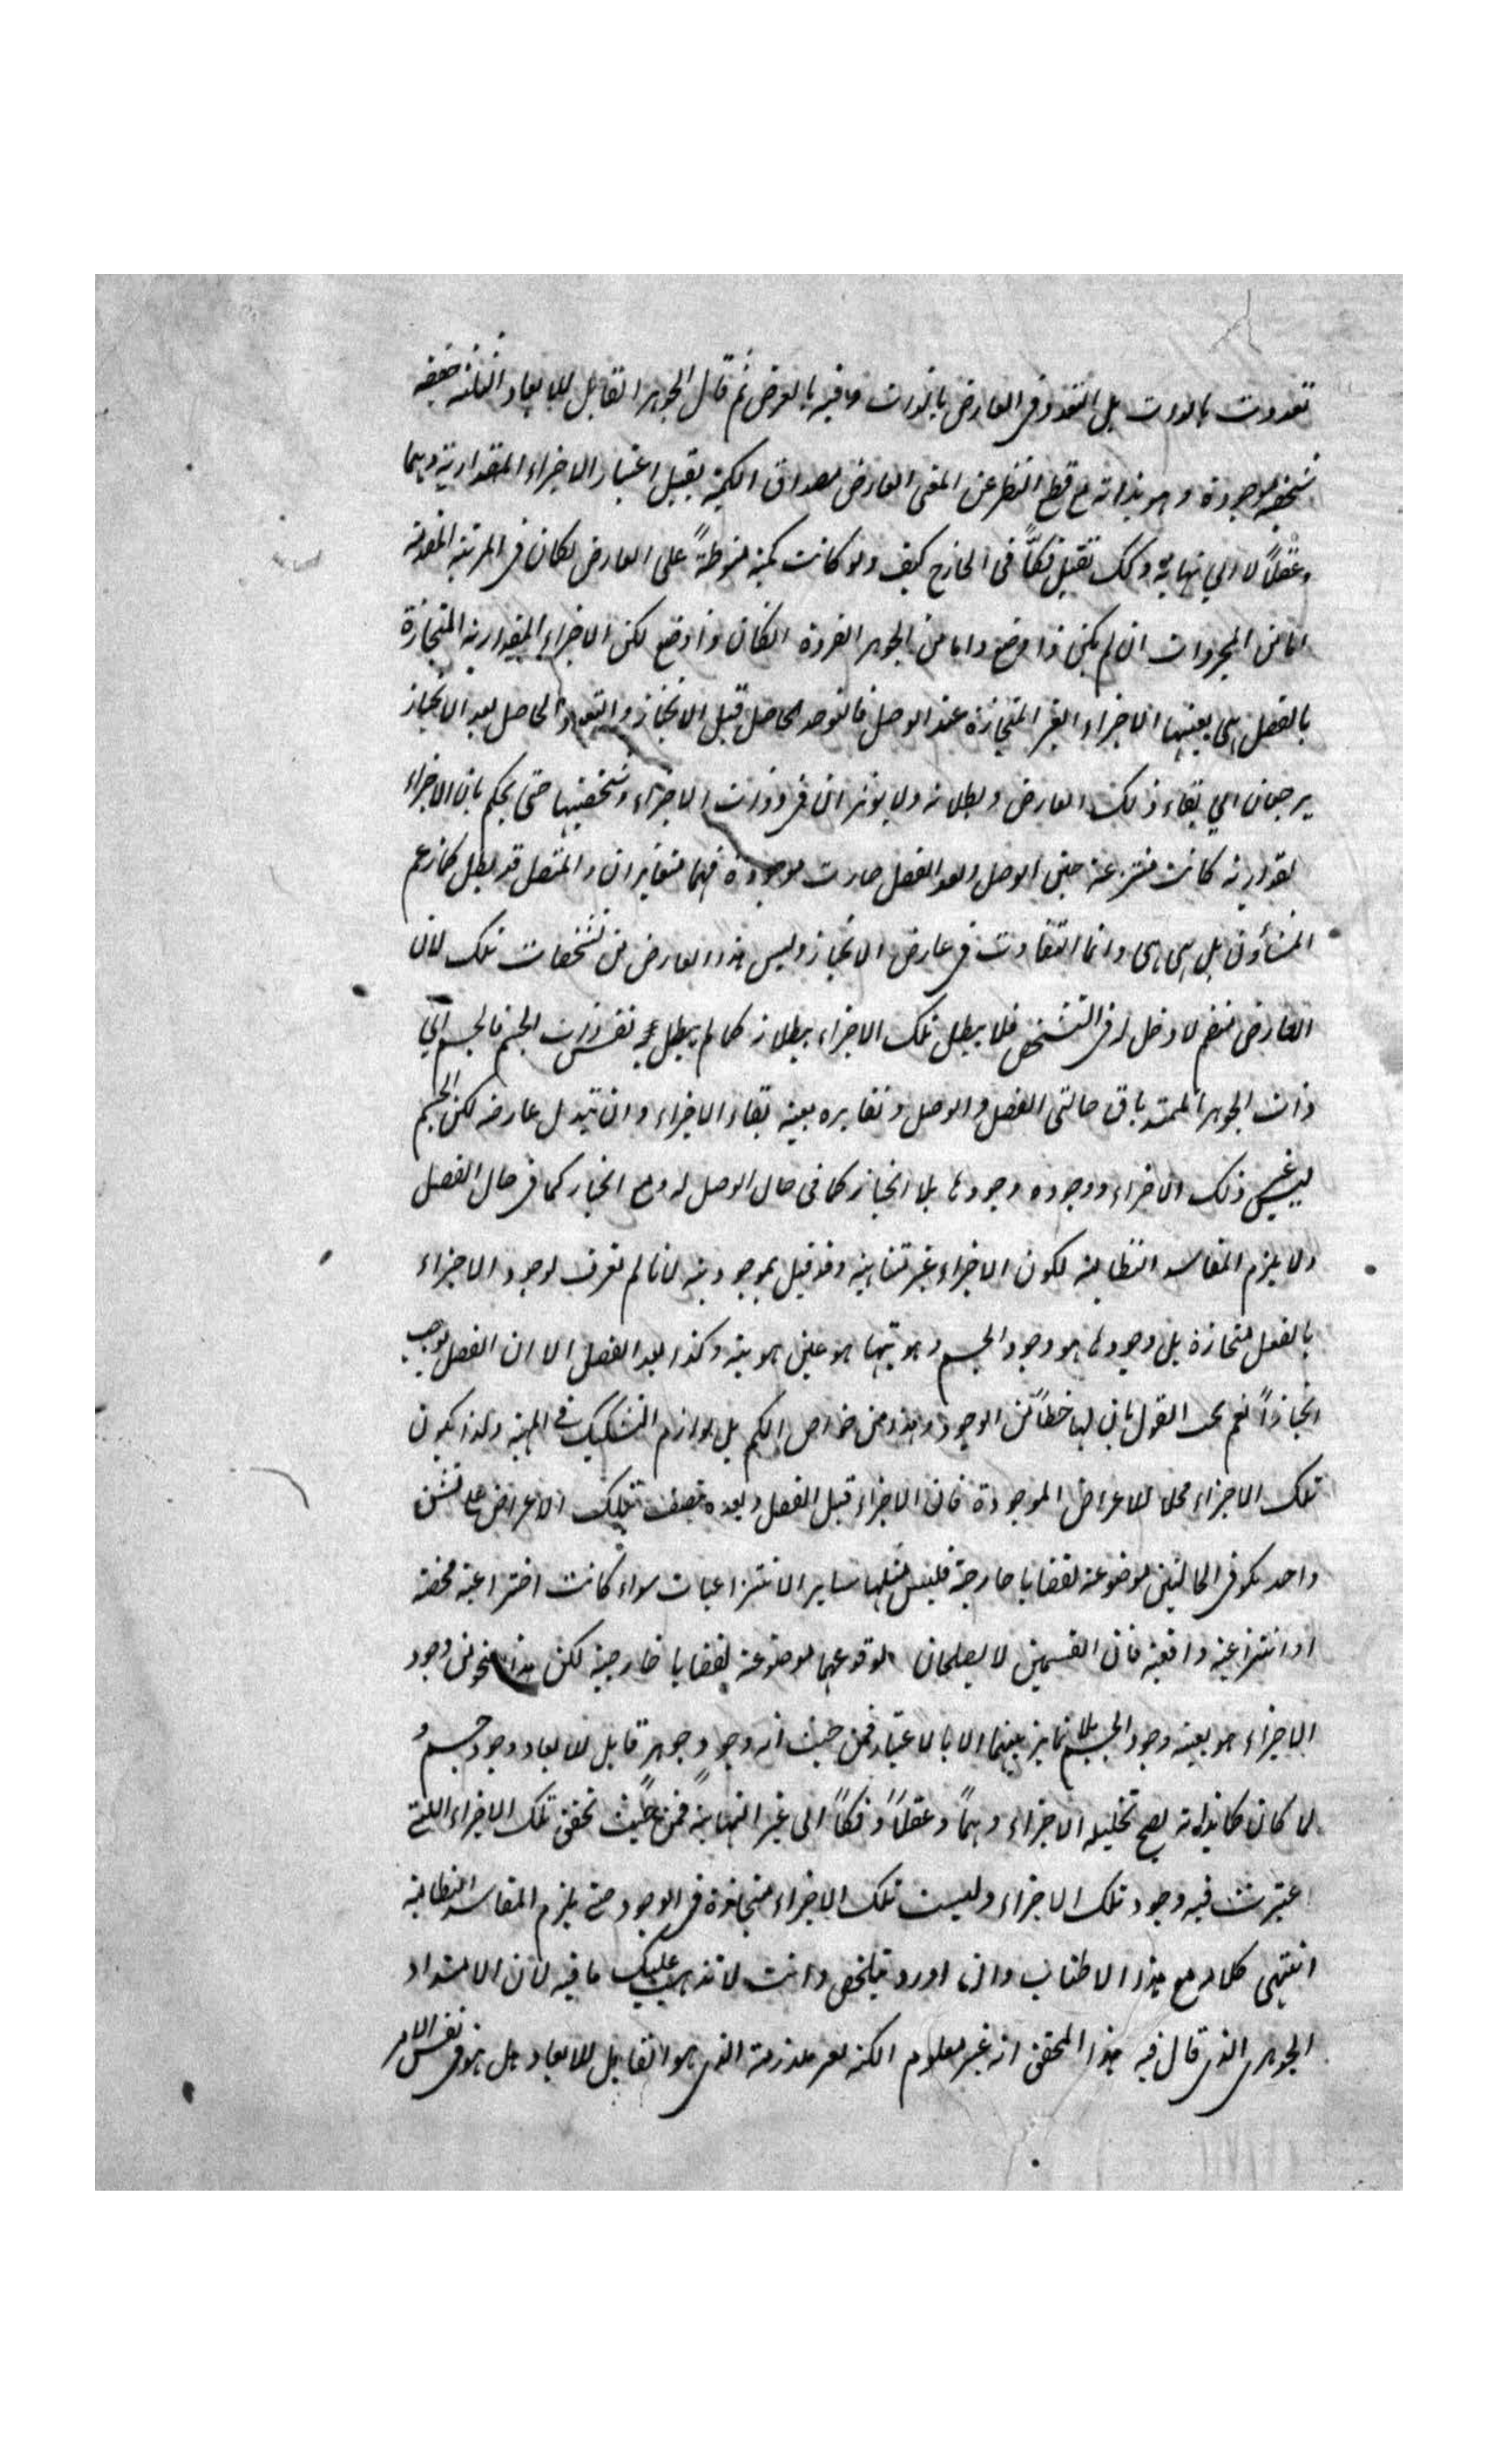 تعددت بالذات بل التعدد فى العارض بالذات وفيه بالعرض ثم قال الجوهر القابل للابعاد الثلثة حقيقة
شخصية موجودة وهو بذاته مع قطع النظر عن المعنى العارض مصداق الكمية يقبل اعتبار الاجزاء المقدارية وهما
وعقلاً لا الي نهاية وكك تقبل فكّاً فى الخارج كيف ولو كانت كمية منوطةً على العارض لكان فى المرتبة المتقدمة
اما من المجردات ان لم يكن ذا وضع واما من الجوهر الفردة ان كان ذا وضع لكن الاجزاء المقدارية المنحازة
بالفصل هى بعينها الاجزاء الغير المنحازة عند الوصل فالتوحد الحاصل قبل الانحياز والتعدد الحاصل بعد الانحياز
يرجعان الي بقاء ذلك العارض وبطلانه ولا يوثران فى ذوات الاجزاء وشخصيتها حتى يحكم بان الاجزاء
المقدارية كانت منتزعة حين الوصل وبعد الفصل صارت موجودة فهما متغايران والمتصل قد بطل كما زعم
المشاؤن بل هى هى وانما التفاوت فى عارض الانحياز وليس هذا العارض من تشخصات تلك لان
العارض منضم لا دخل له فى التشخص فلا يبطل تلك الاجزاء ببطلانه كما لم يبطل به نفس ذات الجسم فالجسم اي
ذات الجوهر الممتد باق حالتى الفصل والوصل وتغايره بعينه بقاء الاجزاء وان تبدل عارضه لكن الجسم
ليس غير ذلك الاجزاء ووجوده وجودها بلا انحياز كما فى حال الوصل له ومع انحياز كما فى حال الفصل
ولا يلزم المفاسد النظامية لكون الاجزاء غير متناهية وقد قيل بموجوديته لانا لم نعرف لوجود الاجزاء
بالفعل منحازة بل وجودها هو وجود الجسم وهويتها هو عين هويته وكذا بعد الفصل الا ان الفصل يوجب
انحيازاً نعم يجب القول بان لها حظاً من الوجود وهذا من خواص الكم بل لوازم التشكيك فى المهية ولذا يكون
تلك الاجزاء محلا للاعراض الموجودة فان الاجزاء قبل الفصل وبعده يتصف بتلك الاعراض على نسق
واحد يكو فى الحالتين موضوعة لقضايا خارجية فليس مثلها ساير الانتزاعيات سواء كانت اختراعية محضة
او انتزاعية واقعية فان القسمين لا يصلحان لوقوعهما موضوعة لقضايا خارجية لكن هذا النحو من وجود
الاجزاء هو بعينه وجود الجسم بلا تمايز بينهما الا بالاعتبار فمن حيث انه وجود جوهر قابل للابعاد وجود جسم و
لما كان كما بذاته يصح تحليله الاجزاء وهماً وعقلاً وفكاً الى غير النهاية فمن حيث تحقق تلك الاجزاء اللتى
اعتبرت فيه وجود تلك الاجزاء وليست تلك الاجزاء منحازة فى الوجود حتى يلزم المفاسد النظامية
انتهى كلامه مع هذا الاطناب وانما اورد بتلخص وانت لا تذهب عليك ما فيه لان الامتداد
الجوهرى الذى قال فيه هذا المحقق انه غير معلوم الكنه لغير ملازمته الذى هو القابل للابعاد بل هو فى نفس الامر